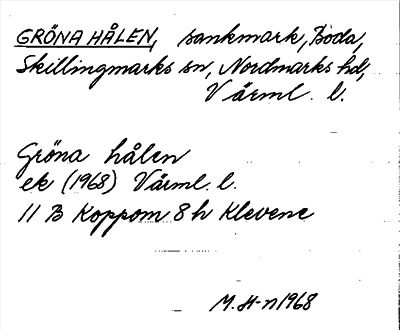 GRÖNA HÅLEN, sankmark, Boda,
Skillingmarks sn, Nordmarks hd,
Värml. l.
Gröna hålen
ek (1968) Värml. l.
11 B Koppom 8 h Klevene
M. H-n 1968